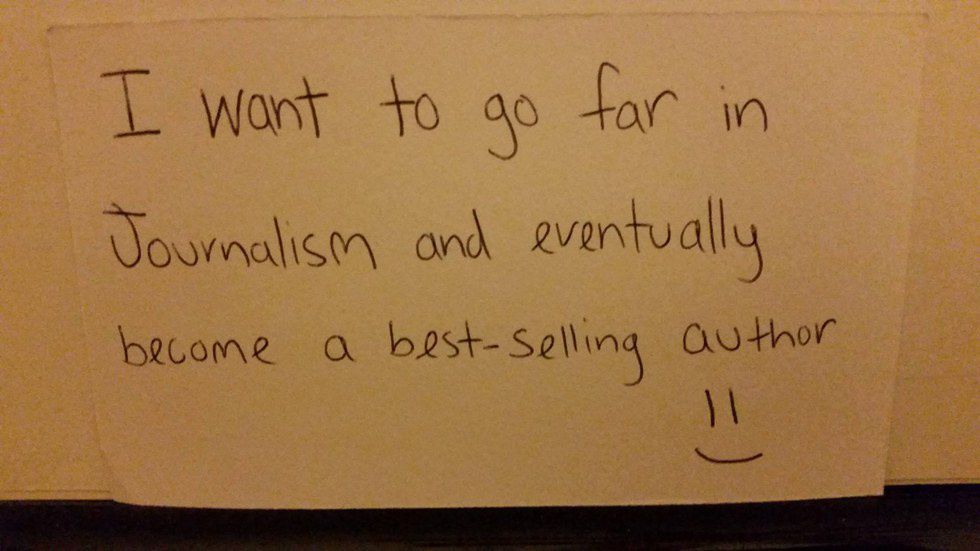 I want to go far in
Journalism and eventually
become a best-selling author